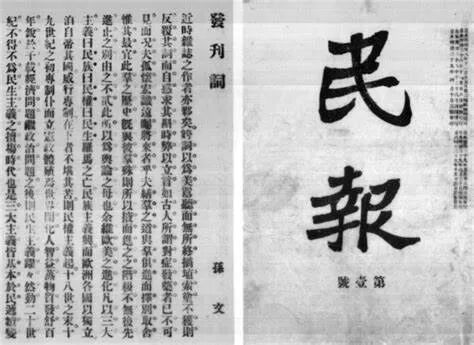 民報
第壹號
發刊詞
孫文
近時雜誌之作者亦夥矣。姱詞以爲美。囂聽而無所終。摘埴索塗不獲。則
反覆其詞而自惑。求其斟時弊以立言。如古人所謂對症發藥者。已不可
見。而况夫孤懷宏識。遠矚將來者乎。夫繕羣之道。與羣俱進。而擇別取舍。
惟其最宜。此羣之歷史。旣與彼羣殊。則所以掖而進之之階級。不無後先
進止之別。由之不貳。此所以爲輿論之母也。余維歐美之進化。凡以三大
主義。曰民族。曰民權。曰民生。羅馬之亡。民族主義興。而歐洲各國以獨立。
洎自帝其國。威行專制。在下者不堪其苦。則民權主義起。十八世紀之末。十
九世紀之初。專制仆而立憲政體殖焉。世界開化。人智益蒸。物質發舒。百
年銳於千載。經濟問題繼政治問題之後。則民生主義躍躍然動。二十世
紀不得不爲民生主義之擅場時代也。是三大主義皆基本於民。遞嬗變